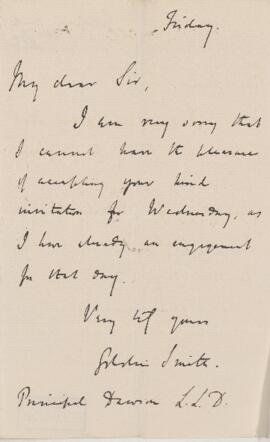 Friday.
My dear Sir,
I am very sorry that
I cannot have the pleasure
of accepting your kind
invitation for Wednesday, as
I have already an engagement
for that day.
Very yours
Goldwin Smith.
Principal Dawson L.L.D.